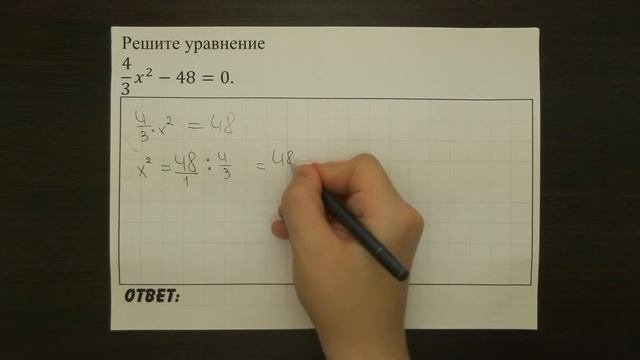 Решите уравнение
4/3 x² − 48 = 0.
4/3 · x² = 48
x² = 48/1 : 4/3 = 48
ОТВЕТ: